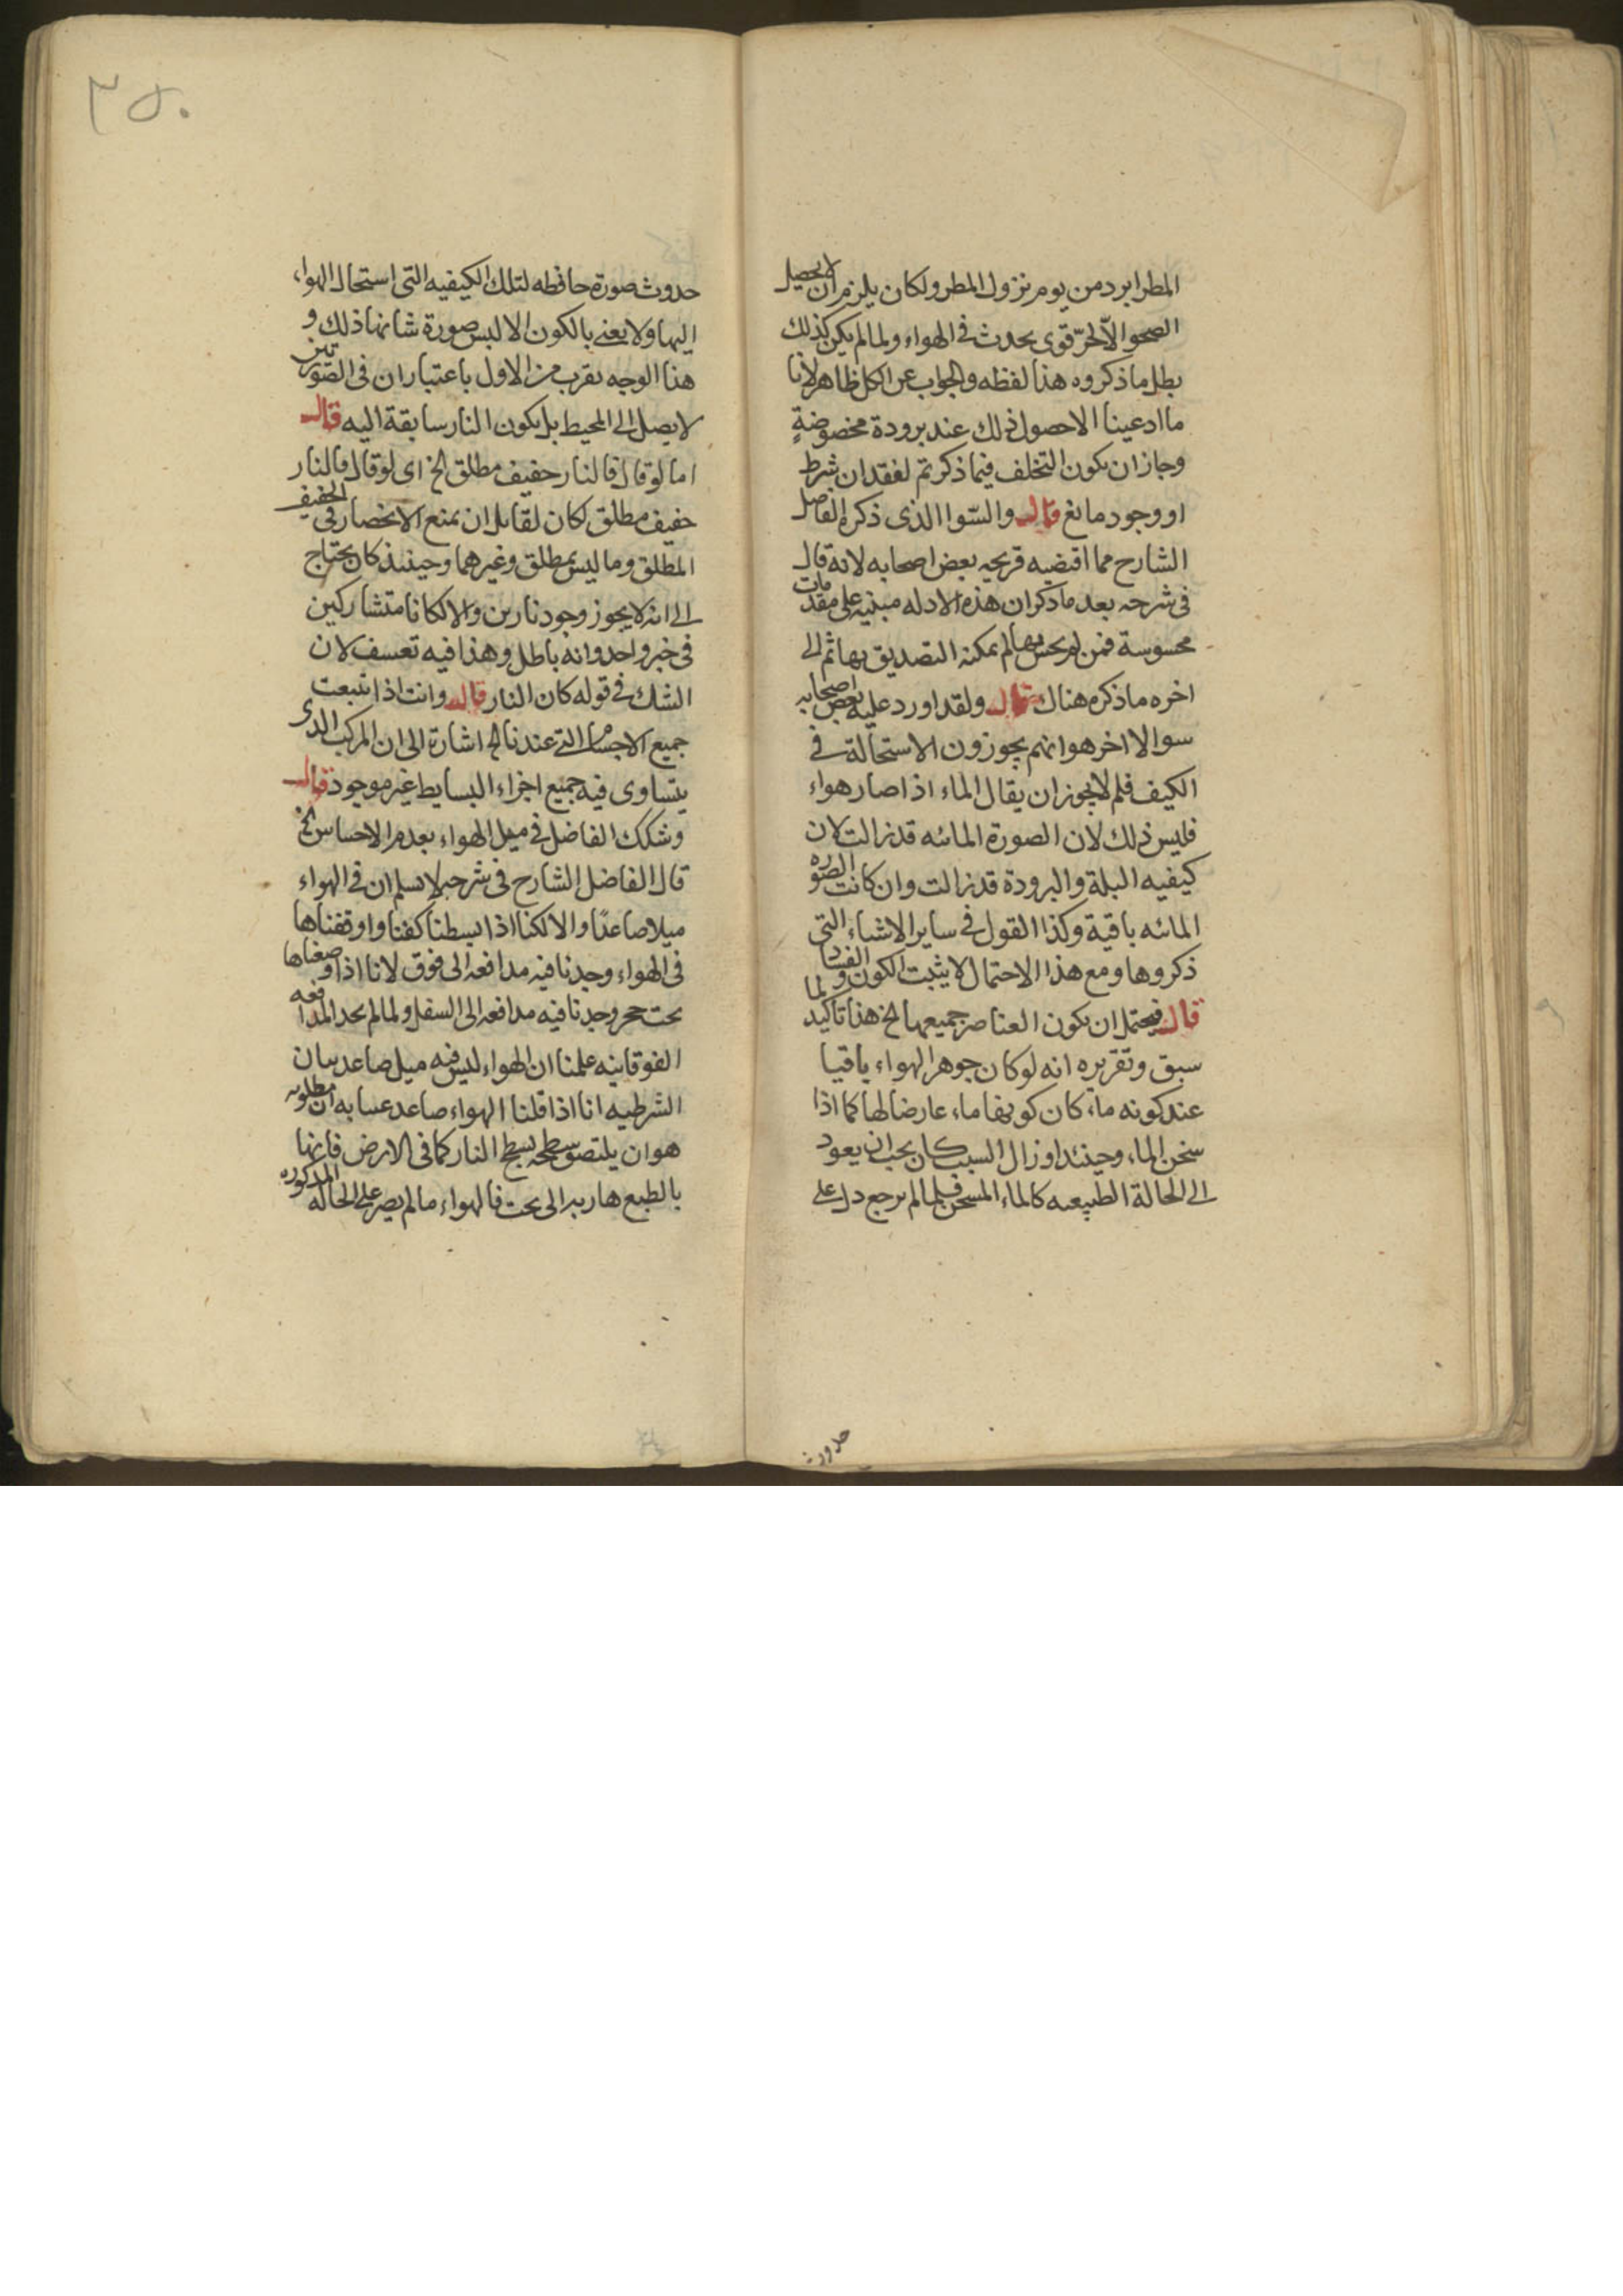 المطر ابرد من يوم نزول المطر ولكان يلزم ان لا يحصل
الصحو الا لحر قوى يحدث فى الهواء ولما لم يكن كذلك
بطل ما ذكروه هذا لفظه والجواب عن الكل ظاهر لانا
ما ادعينا الا حصول ذلك عند برودة مخصوصة
وجاز ان يكون التخلف فيما ذكرتم لفقدان شرط
او وجود مانع قال والسوا الذى ذكره الفاضل
الشارح مما اقتضبه قريحه بعض اصحابه لانه قال
فى شرحه بعد ما ذكر ان هذه الادله مبنيه على مقدمات
محسوسة فمن لم يحس بها لم يمكنه التصديق بها ثم الى
اخره ما ذكره هناك قال ولقد اورد عليه بعض اصحابه
سوالا اخر هو انهم يجوزون الاستحالة فى
الكيف فلم لا يجوز ان يقال الماء اذا صار هواء
فليس ذلك لان الصورة المائيه قد زالت لان
كيفيه البلة والبرودة قد زالت وان كانت الصوره
المائيه باقية وكذا القول فى ساير الاشياء التى
ذكروها ومع هذا الاحتمال لا يثبت الكون والفساد
قال فيحتمل ان يكون العناصر جميعها الخ هذا تاكيد لما
سبق وتقريره انه لو كان جوهر الهواء باقيا
عند كونه ماء كان كونها ماء عارضا لها كما اذا
سخن الماء وحينئذ اوزال السبب كان يجب ان يعود
الى الحالة الطبيعيه كالماء المسخن فلما لم يرجع دل على
حدوث
٣٥٠
حدوث صورة حافظه لتلك الكيفيه التى استحال الهواء
اليها ولا يعنى بالكون الا لبس صورة شانها ذلك و
هذا الوجه يقرب من الاول باعتبار ان فى الصورتين
لا يصل الى المحيط بل يكون النار سابقة اليه قال
اما لو قال فالنار خفيف مطلق الخ اى لو قال فالنار
خفيف مطلق لكان لقايل ان يمنع الانحصار فى الخفيف
المطلق وما ليس بمطلق وغيرهما وحينئذ كان يحتاج
الى انه لا يجوز وجود نارين والا لكانا متشاركين
فى خبر واحد وانه باطل وهذا فيه تعسف لان
الشك فى قوله كان النار قال وانت اذا تتبعت
جميع الاجسام التى عندنا الخ اشارة الى ان المركب الذى
يتساوى فيه جميع اجزاء البسايط غير موجود قال
وشكك الفاضل فى ميل الهواء بعدم الاحساس الخ
قال الفاضل الشارح فى شرحه لا نسلم ان فى الهواء
ميلا صاعدا والا لكنا اذا بسطنا كفنا واوقفناها
فى الهواء وجدنا فيه مدافعه الى فوق لانا اذا وضعناها
تحت حجر وجدنا فيه مدافعه الى السفل ولما لم نجد المدافعه
الفوقانيه علمنا ان الهواء ليس فيه ميل صاعد بيان
الشرطيه انا اذا قلنا الهواء صاعد عنينا به ان مطلوبه
هو ان يلتصق سطحه بسطح النار كما فى الارض فانها
بالطبع هاربه الى تحت فالهواء ما لم يصر على الحالة المذكوره